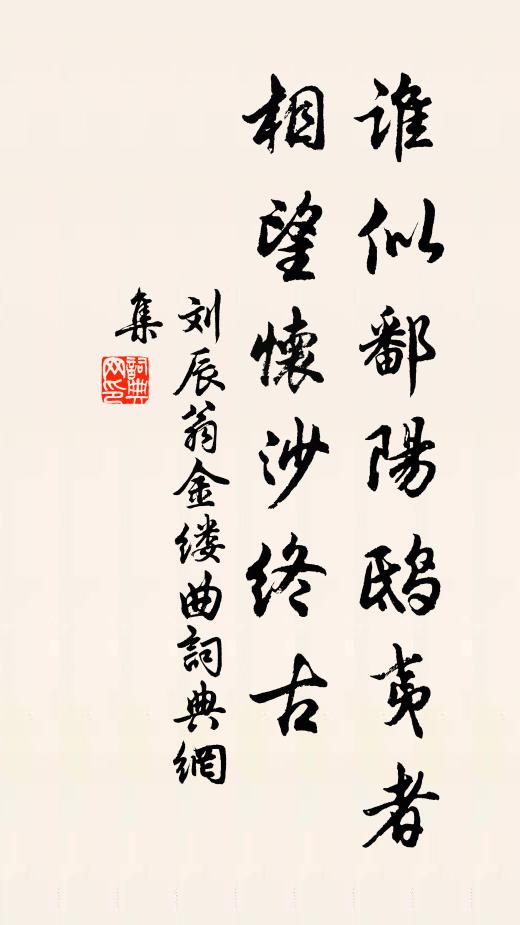 谁似鄱陽鸱夷者
相望懷沙终古
刘辰翁金缕曲詞典網
集
詞典网印